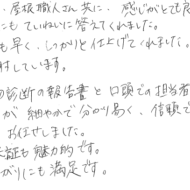 、屋根職人さん共に、感じがとても良
にもていねいに答えてくれました。
も早く、しっかりと仕上げてくれました。
対しています。
の診断の報告書と口頭での担当者
が細やかで分かり易く、信頼で
お任せしました。
証も魅力的です。
がりにも満足です。